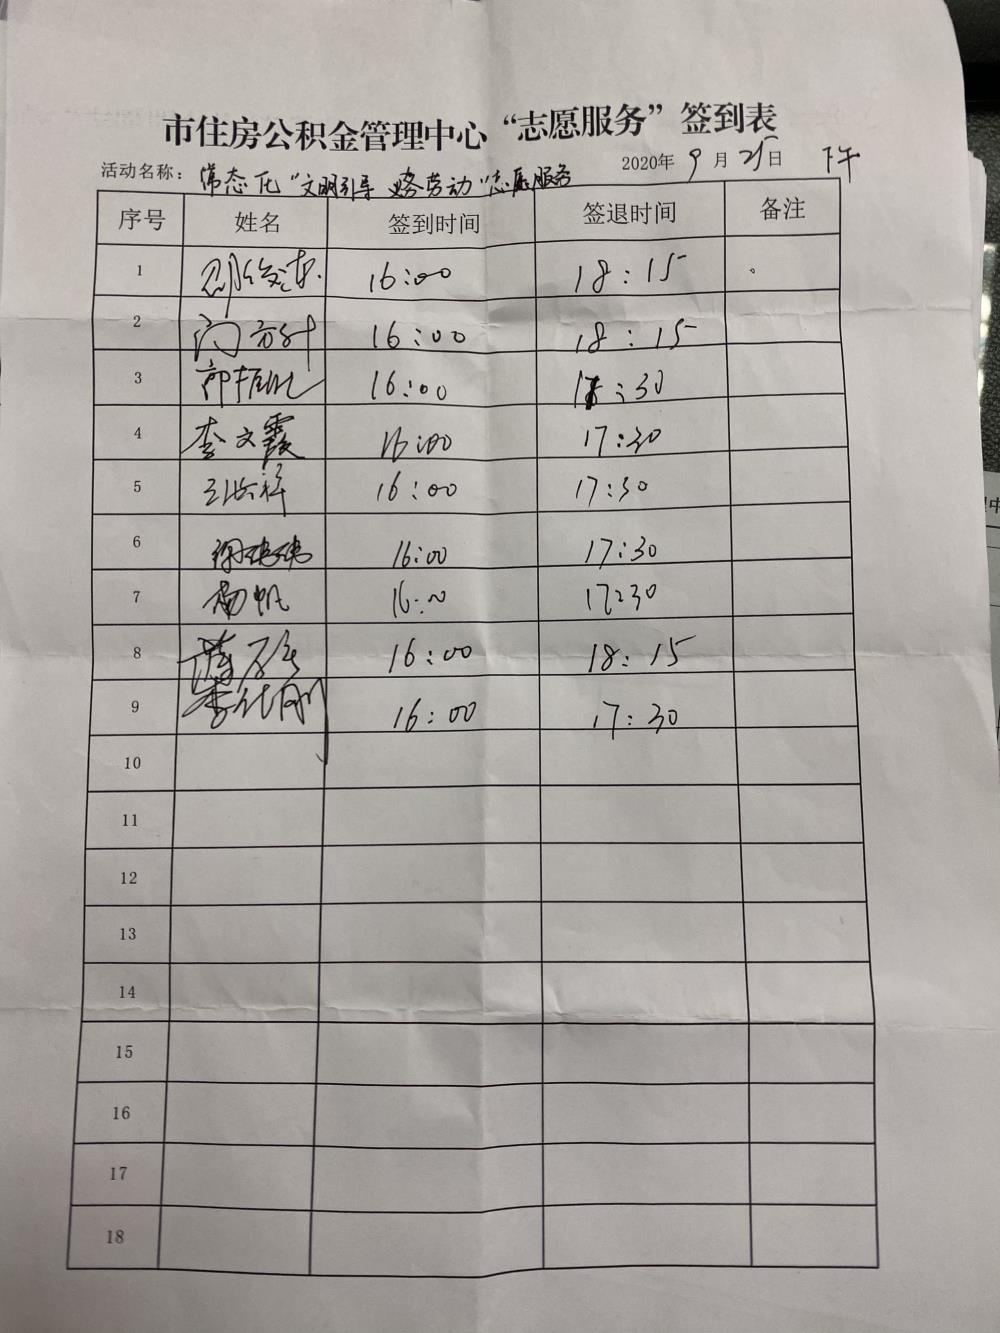 市住房公积金管理中心“志愿服务”签到表
活动名称：常态化“文明引导 义务劳动”志愿服务 2020年9月25日 下午
序号 姓名 签到时间 签退时间 备注
1 16:00 18:15
2 16:00 18:15
3 16:00 :30
4 李文霞 16:00 17:30
5 16:00 17:30
6 16:00 17:30
7 杨帆 16:00 17:30
8 16:00 18:15
9 16:00 17:30
10
11
12
13
14
15
16
17
18